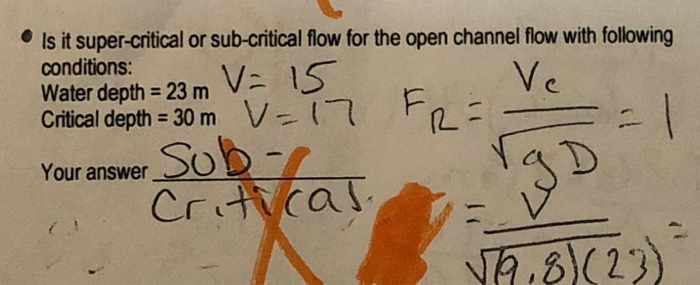 Is it super-critical or sub-critical flow for the open channel flow with following
conditions:
Water depth = 23 m V = 15
Critical depth = 30 m V = 17
FR = Vc / √gD = 1
Your answer Sub-
Critical
= V / √(9.8)(23) =